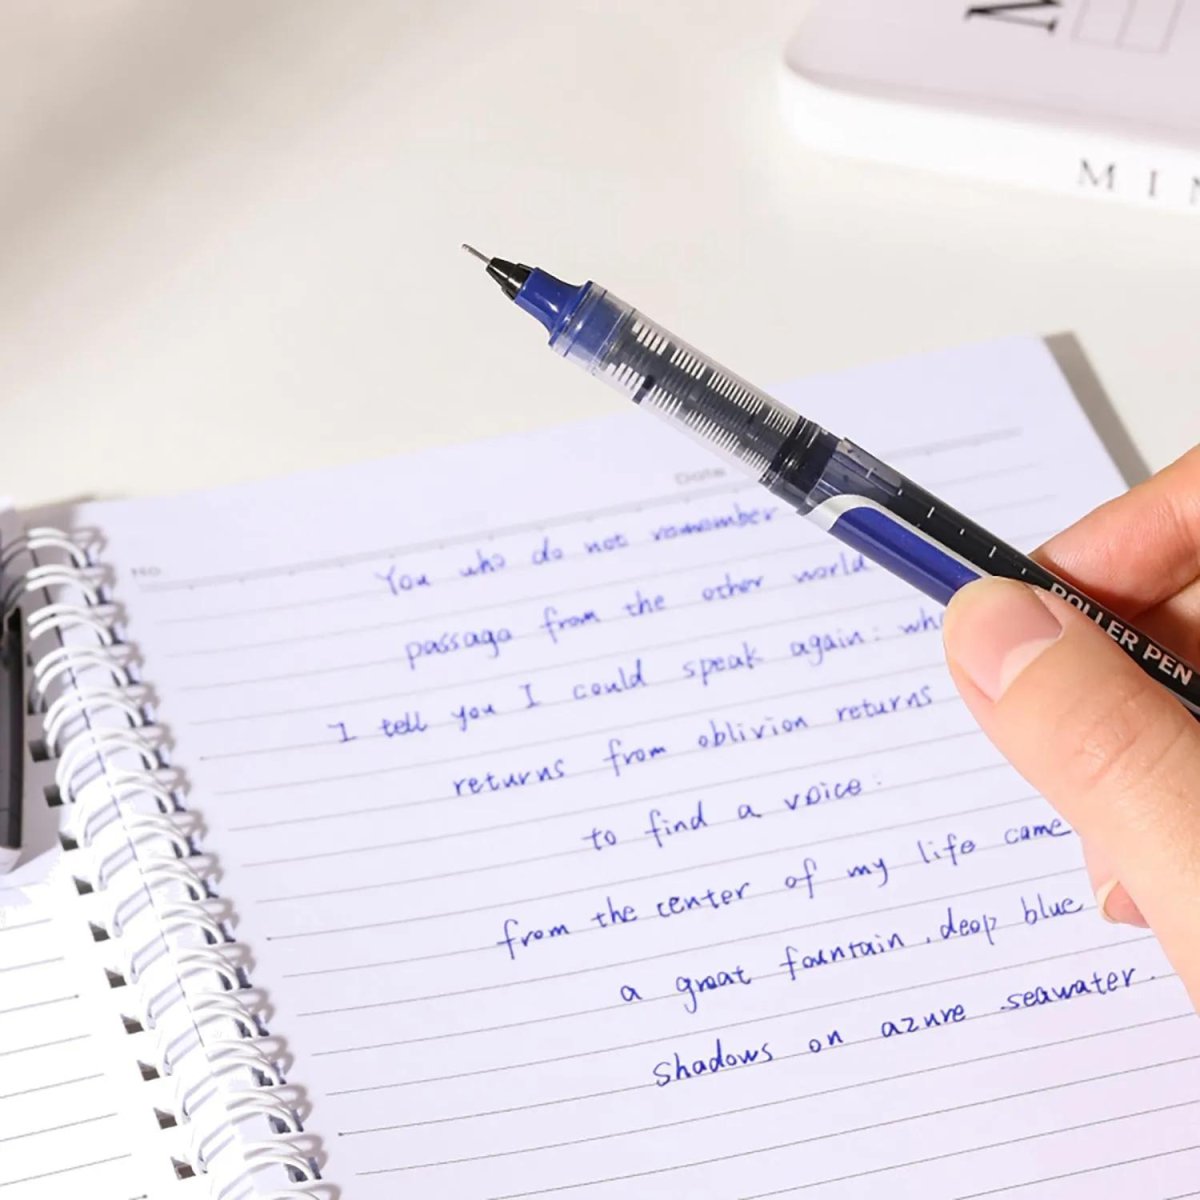 MIN
No
Date
You who do not remember
passage from the other world
I tell you I could speak again: wh
returns from oblivion returns
to find a voice:
from the center of my life came
a great fountain, deep blue
shadows on azure seawater.
ROLLER PEN